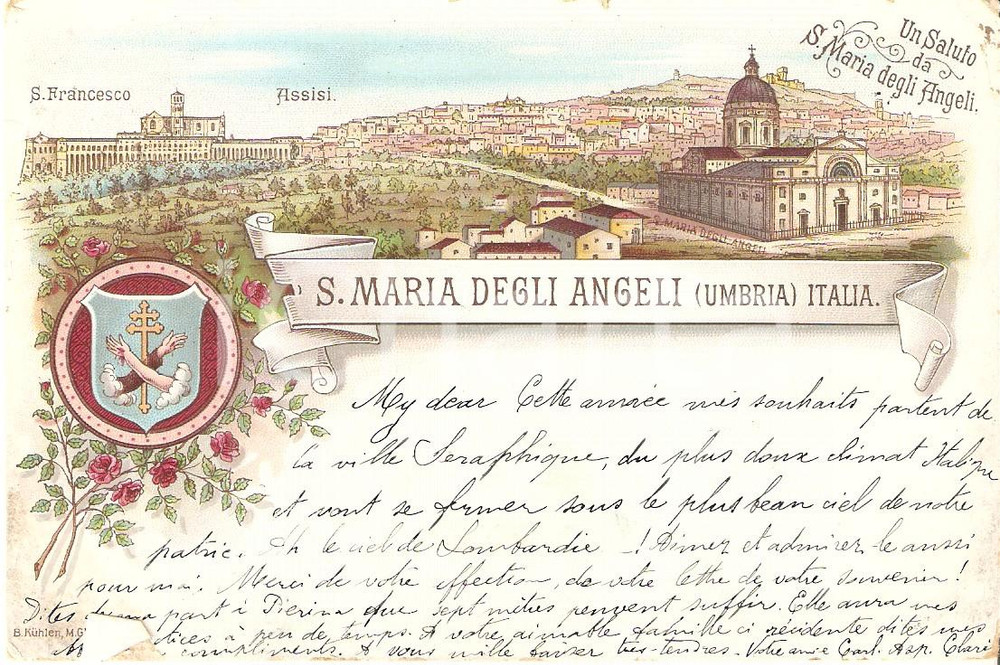 Un Saluto
da
S. Maria degli Angeli.
S. Francesco
Assisi.
S. MARIA DEGLI ANGELI
S. MARIA DEGLI ANGELI (UMBRIA) ITALIA.
My dear Cette année mes souhaits partent de
la ville Seraphique, du plus doux climat Italique
et vont se fermer sous le plus beau ciel de notre
patrie. Ah le ciel de Lombardie _! Aimez et admirez le aussi
pour moi. Merci de votre affection, de votre lettre de votre souvenir!
Dites de ma part à Pierina que sept mètres peuvent suffir. Elle aura mes
B. Kühlen, M.G
à peu de temps. A votre aimable famille ci résidente dites mes
compliments. A vous mille baiser très-tendres. Votre amie Carl. Asp. Clari